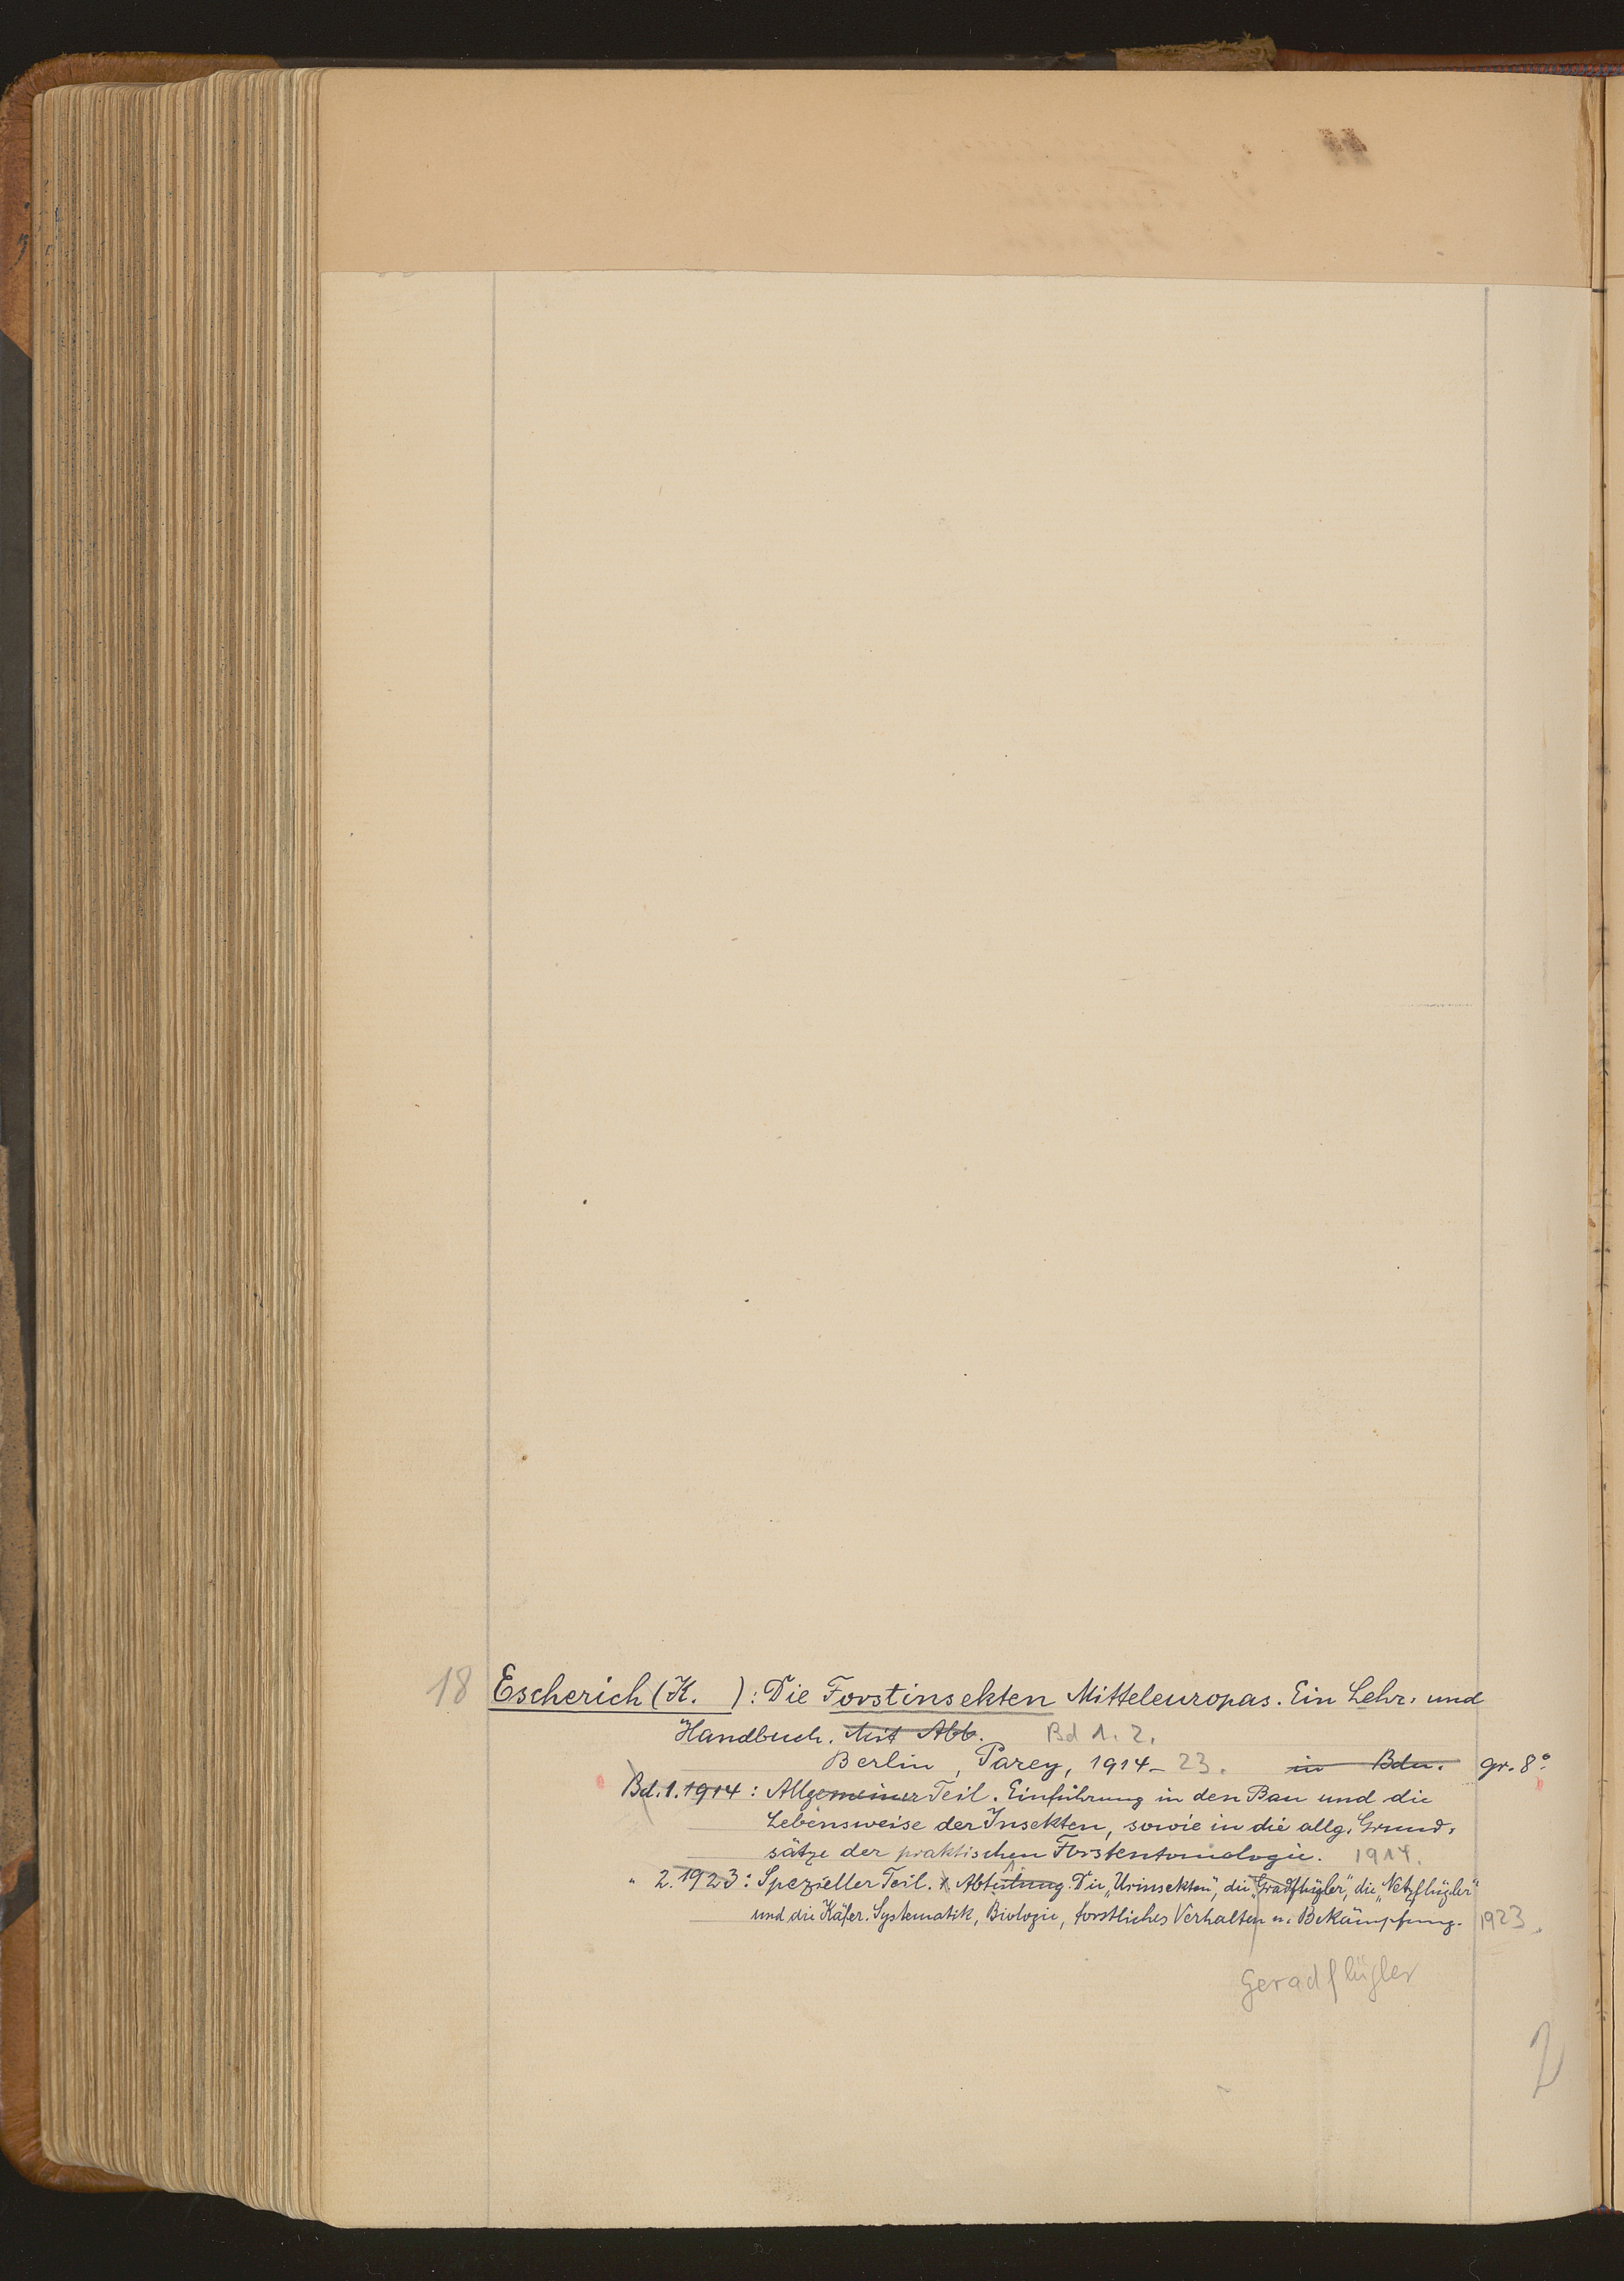 18 Escherich (K. ): Die Forstinsekten Mitteleuropas. Ein Lehr- und
Handbuch. Mit Abb. Bd 1. 2.
Berlin, Parey, 1914-23. in Bdn. gr. 8°.
Bd. 1. 1914: Allgemeiner Teil. Einführung in den Bau und die
Lebensweise der Insekten, sowie in die allg. Grund-
sätze der praktischen Forstentomologie. 1914.
" 2. 1923: Spezieller Teil. 1. Abteilung. Die „Urinsekten", die „Gradflügler", die „Netzflügler"
und die Käfer. Systematik, Biologie, forstliches Verhalten u. Bekämpfung. 1923.
Geradflügler
2